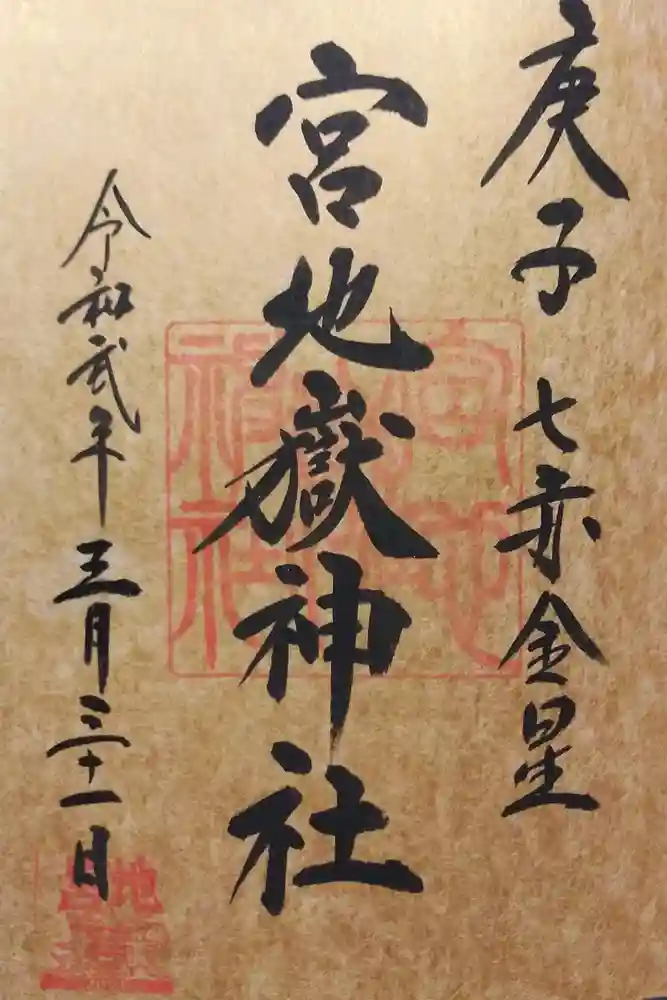 庚子 七赤金星
宮地嶽神社
令和弐年三月三十一日